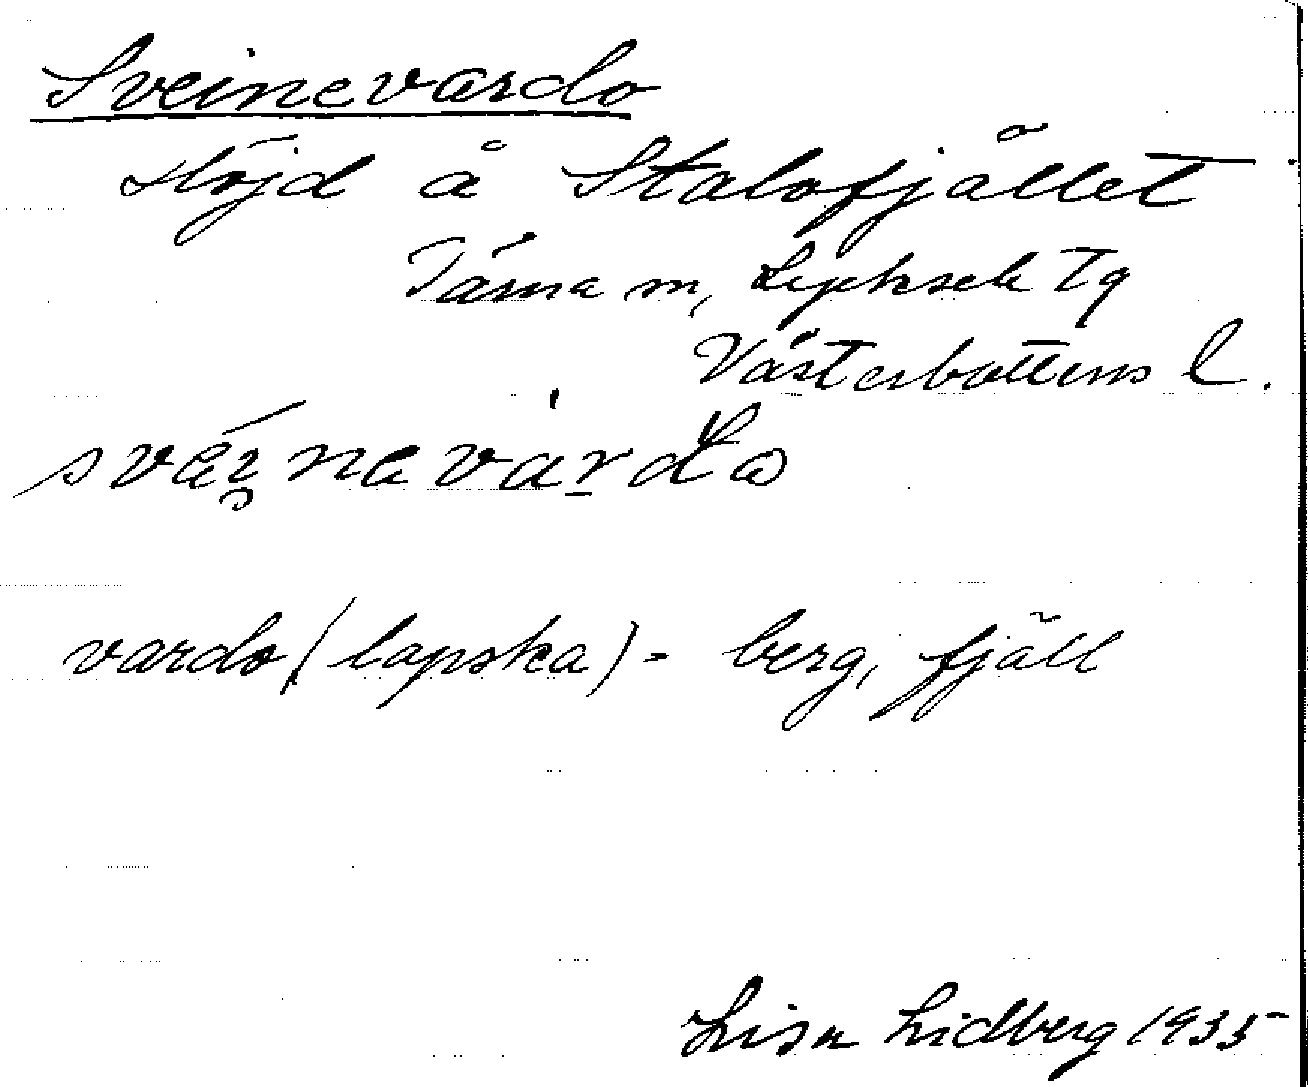 Sveinevardo
Höjd å Stalofjället
Tärna m, Lycksele Tg
Västerbottens l.
vardo (lapska) = berg, fjäll
Lisa Lidberg 1935